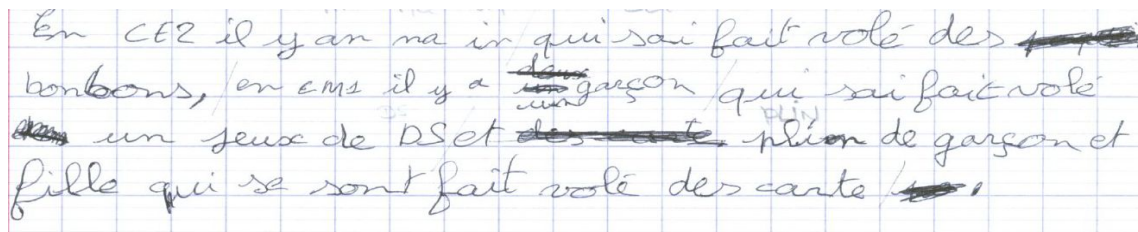 En CE2 il y an na in qui sai fait volé des
bonbons, en CM1 il y a un garçon qui sai fait volé
un jeux de DS et plin de garçon et
fille qui se sont fait volé des carte.